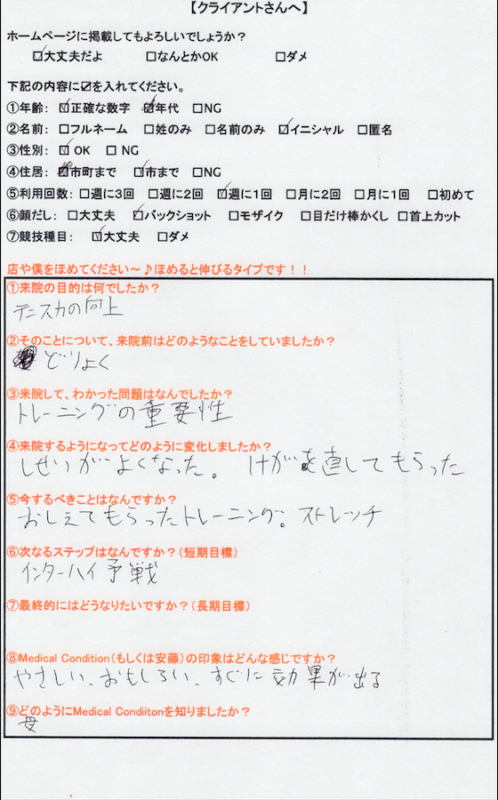 【クライアントさんへ】
ホームページに掲載してもよろしいでしょうか？
☑大丈夫だよ □なんとかOK □ダメ
下記の内容に☑を入れてください。
①年齢：☑正確な数字 ☑年代 □NG
②名前：□フルネーム □姓のみ □名前のみ ☑イニシャル □匿名
③性別：☑OK □NG
④住居：☑市町まで ☑市まで □NG
⑤利用回数：□週に3回 □週に2回 ☑週に1回 □月に2回 □月に1回 □初めて
⑥顔だし：□大丈夫 ☑バックショット □モザイク □目だけ棒かくし □首上カット
⑦競技種目：☑大丈夫 □ダメ
店や僕をほめてください～♪ほめると伸びるタイプです！！
①来院の目的は何でしたか？
テニス力の向上
②そのことについて、来院前はどのようなことをしていましたか？
どりょく
③来院して、わかった問題はなんでしたか？
トレーニングの重要性
④来院するようになってどのように変化しましたか？
しせいがよくなった。 けがを直してもらった
⑤今するべきことはなんですか？
おしえてもらったトレーニング。ストレッチ
⑥次なるステップはなんですか？（短期目標）
インターハイ予戦
⑦最終的にはどうなりたいですか？（長期目標）
⑧Medical Condition（もしくは安藤）の印象はどんな感じですか？
やさしい、おもしろい、すぐに効果が出る
⑨どのようにMedical Condiitonを知りましたか？
母